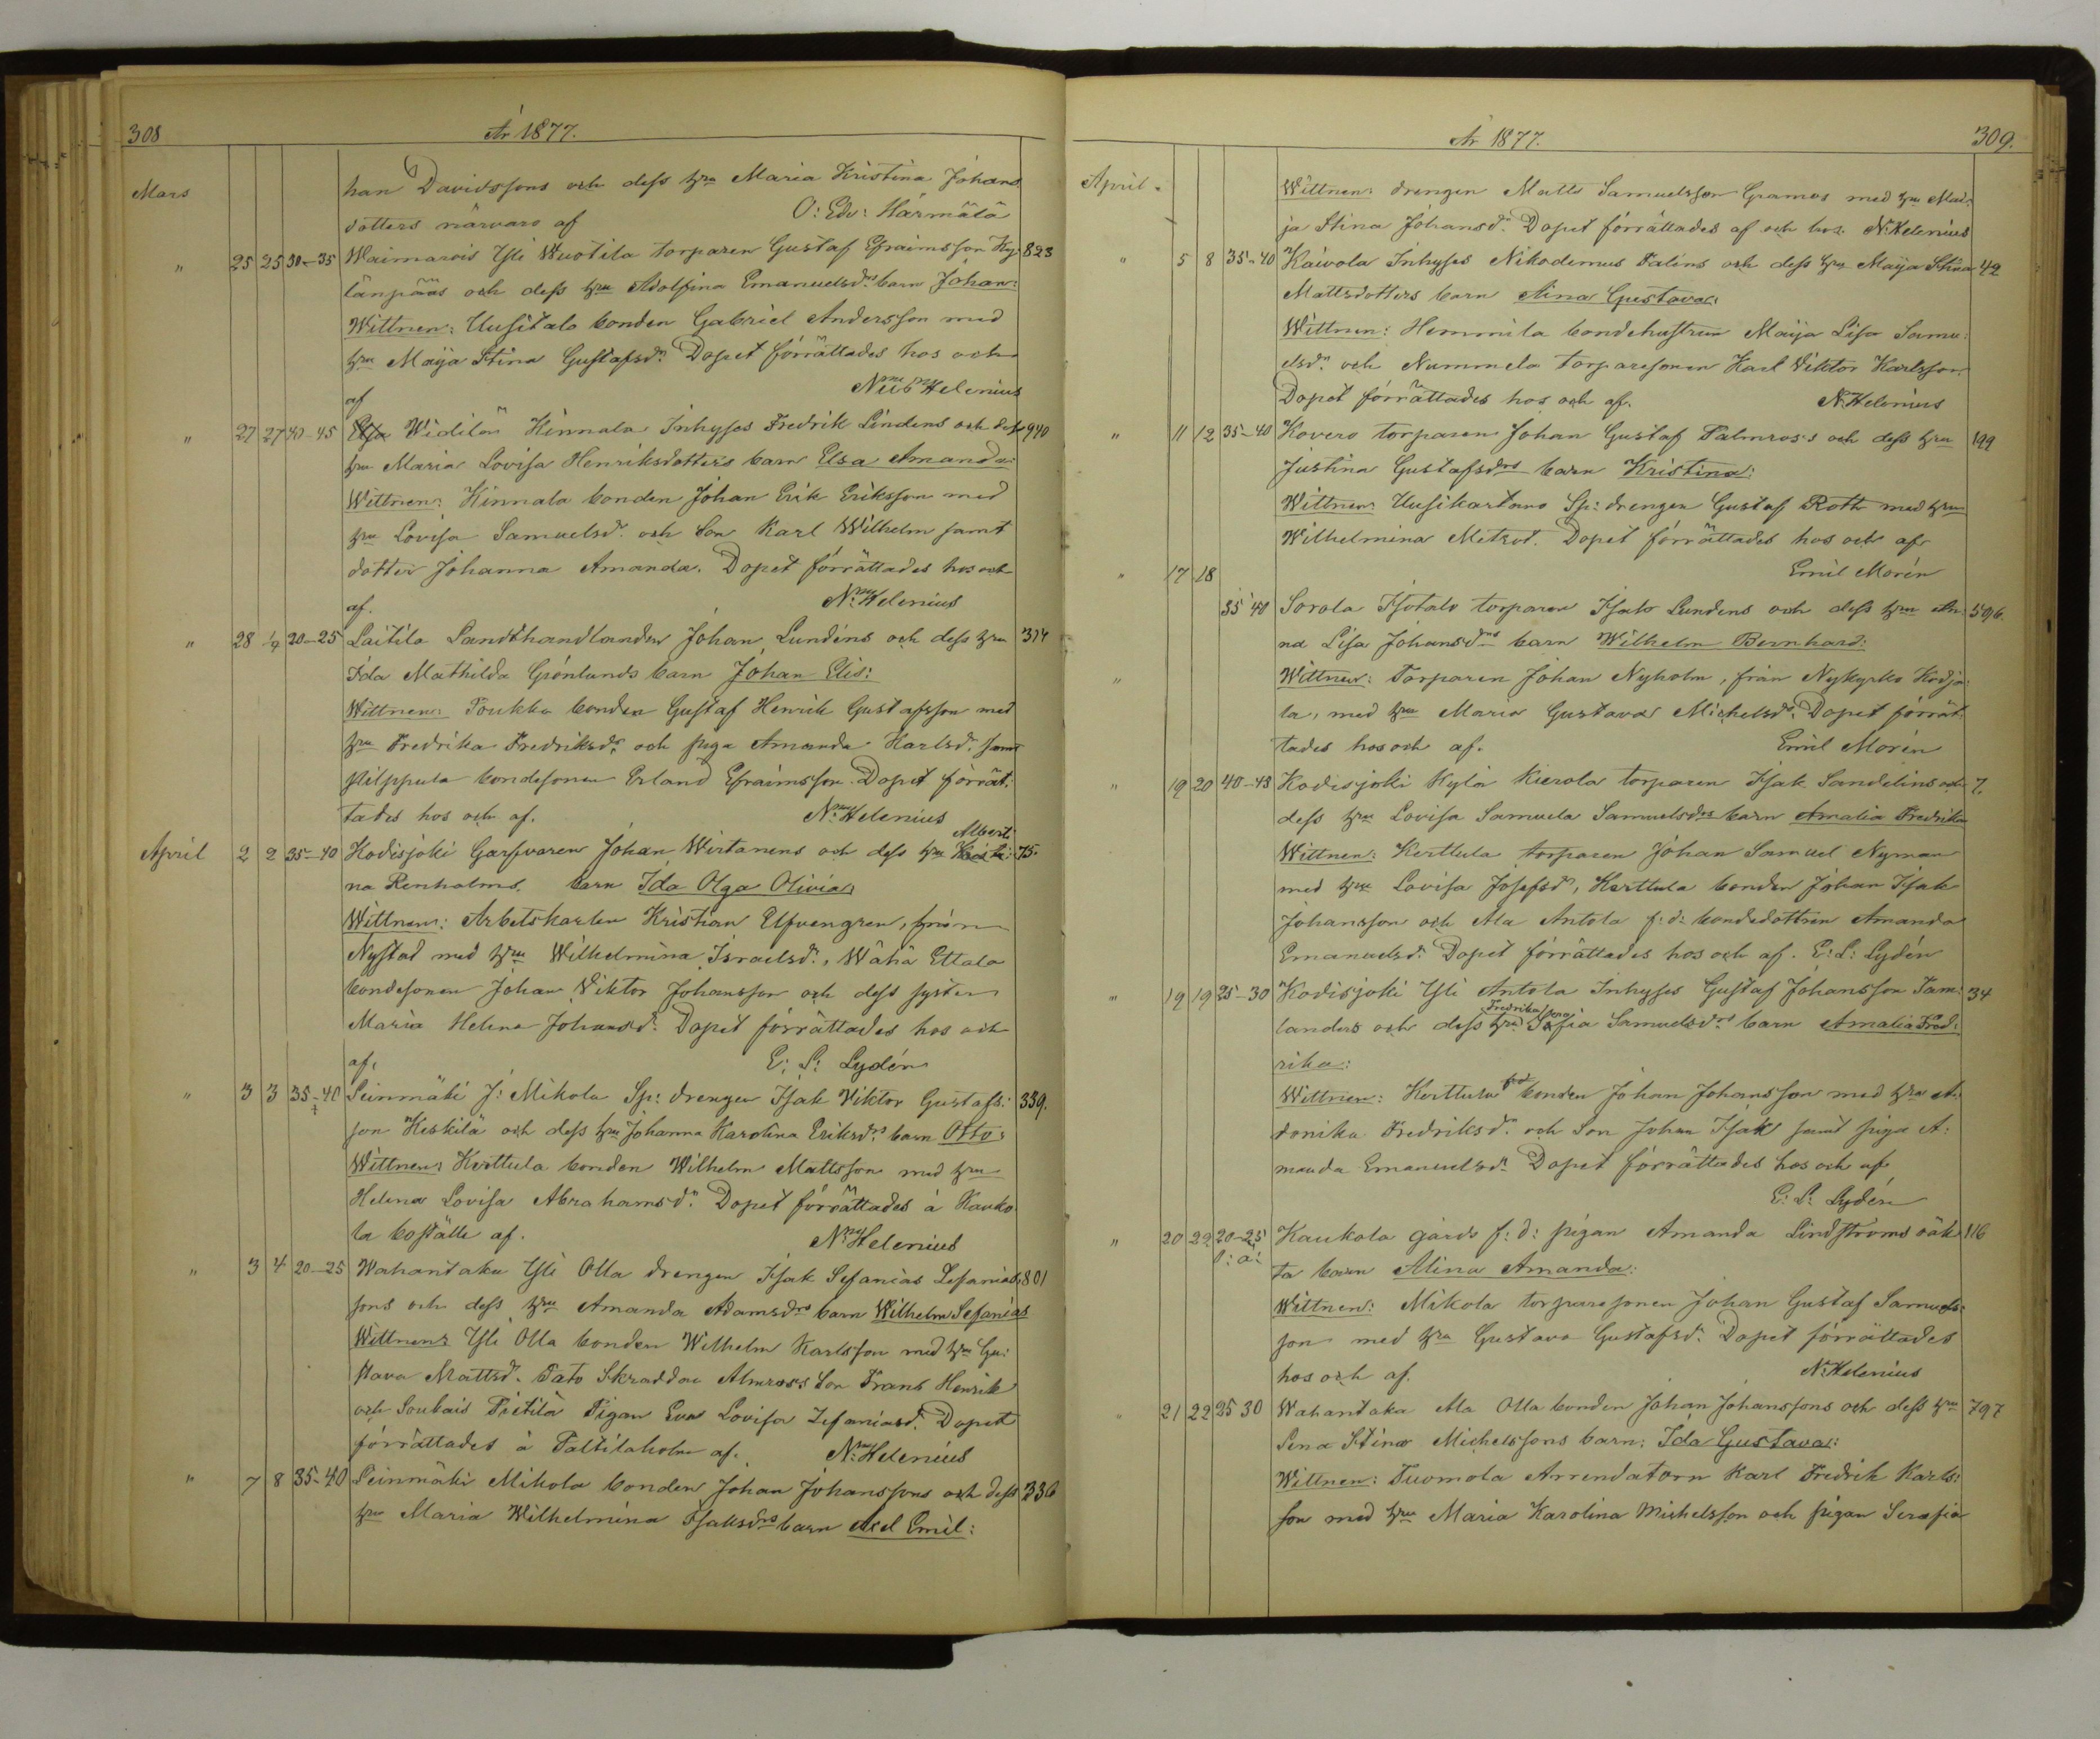 308
År 1877.
Mars
han Davidssons och dess hru Maria Kristina Johans
dotters närvaro af O: Edv: Härmälä
" 25 25 30-35 Waimarois Yli Wuotila torparen Gustaf Efraimsson Ky- 823
länpääs och dess hru Adolfina Emanuelsdrs barn Johan:
Wittnen: Uusitalo bonden Gabriel Andersson med
hru Maija Stina Gustafsdr. Dopet förrättades hos och
af Helenius
" 27 27 40-45 Widilä Kinnala Inhyses Fredrik Lindens och dess 940
hru Maria Lovisa Henriksdotters barn Elsa Amanda:
Wittnen: Kinnala bonden Johan Erik Eriksson med
hru Lovisa Samuelsd. och Son Karl Wilhelm samt
dotter Johanna Amanda. Dopet förrättades hos och
af. N: Helenius
" 28 1/4 20-25 Laitila Landthandlanden Johan Lundens och dess hru 314
Ida Mathilda Grönlunds barn Johan Elis:
Wittnen: Poukka bonden Gustaf Henrik Gustafsson med
hru Fredrika Fredriksdr och piga Amanda Karlsd. samt
Pilppula bondesonen Erland Efraimsson. Dopet förrät-
tades hos och af. N: Helenius
Alberti
April 2 2 35-40 Kodisjoki Garfvaren Johan Wirtanens och dess hru 75.
na Renholms. barn Ida Olga Olivia:
Wittnen: Arbetskarlen Kristian Elfvengren, från
Nystad med hru Wilhelmina Israelsdr., Wähä Ettala
bondesonen Johan Viktor Johansson och dess syster
Maria Helena Johansd. Dopet förrättades hos och
af. E: S: Lydén
" 3 3 35-40 Leinmäki J: Mikola Sp: drengen Isak Viktor Gustafs: 339.
son Keskilä och dess hru Johanna Karolina Eriksdrs barn Otto:
Wittnen: Kerttula bonden Wilhelm Mattsson med hru
Helena Lovisa Abrahamsdr. Dopet förrättades å Kauko
la boställe af. N: Helenius
" 3 4 20-25 Wahantaka Yli Olla drengen Isak Sefanias Zefanias 801
sons och dess hru Amanda Adamsdrs barn Wilhelm Sefanias
Wittnen: Yli Olla bonden Wilhelm Karlsson med hru Gu:
stava Mattsd. Tato Skraddar Almross Son Frans Henrik
och Soukais Pietilä Pigan Eva Lovisa Zefaniasd. Dopet
förrättades å Palttilaholm af. N: Helenius
" 7 8 35-40 Leinmäki Mikola bonden Johan Johanssons och dess 336
hru Maria Wilhelmina Isaksdrs barn Axel Emil:
År 1877.
309.
April.
Wittnen: drengen Matts Samuelsson Granros med hru Mai-
ja Stina Johansd. Dopet förrättades af och hos. N: Helenius
" 5 8 35-40 Kaivola Inhyses Nikodemus Palins och dess hru Maija Stina 42
Mattsdotters barn Aina Gustava:
Wittnen: Hemmila bondehustrun Maija Lisa Samu:
elsdr. och Nummela torparesonen Karl Viktor Karlsson.
Dopet förrättades hos och af. N: Helenius
" 11 12 35-40 Kovero torparen Johan Gustaf Palmross och dess hru 199
Justina Gustafsdrs barn Kristina:
Wittnen: Uusikartano Sp: drengen Gustaf Roth med hru
Wilhelmina Mctsd. Dopet förrättades hos och af
Emil Morén
" 17 18
35 40 Sorola Isotalo torparen Isak Lundens och dess hru An: 596.
na Lisa Johansdrs barn Wilhelm Bernhard:
" Wittnen: Torparen Johan Nyholm, från Nykyrko Kodja-
la, med hru Maria Gustava Michelsdr. Dopet förrät-
tades hos och af. Emil Morén
" 19 20 40-43 Kodisjoki Kylä Kierola torparen Isak Sandelins och 7.
dess hru Lovisa Samuela Samuelsdrs barn Amalia Fredrika
Wittnen: Kerttula torparen Johan Samuel Nyman
med hru Lovisa Josefsdr, Kerttula bonden Johan Isak
Johansson och Ala Antola f: d: bondedottren Amanda
Emanuelsd. Dopet förrättades hos och af. E: S: Lydén
" 19 19 25-30 Kodisjoki Yli Antola Inhyses Gustaf Johansson Tam: 34
Fredrika
landers och dess hru Sofia Samuelsdrs barn Amalia Fred:
rika:
Wittnen: Kerttula bonden Johan Johansson med hru A:
donika Fredriksdr. och Son Johan Isak samt piga A:
manda Emanuelsdr. Dopet förrättades hos och af
E: S: Lydén
" 20 22 20-25 Kaukola gårds f: d: pigan Amanda Lindströms oäk 116
O: ä: ta barn Alina Amanda:
Wittnen: Mikola torparesonen Johan Gustaf Samuels:
son med hru Gustava Gustafsd. Dopet förrättades
hos och af. N: Helenius
" 21 22 25 30 Wahantaka Ala Olla bonden Johan Johanssons och dess hru 797
Lena Stina Michelssons barn: Ida Gustava:
Wittnen: Tuomola Arrendatorn Karl Fredrik Karls:
son med hru Maria Karolina Michelsson och pigan Serafia